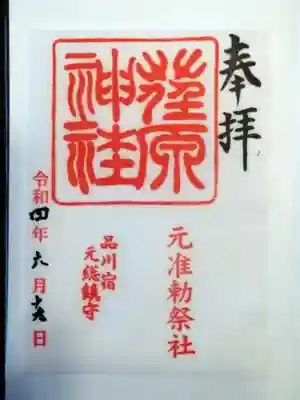 奉拝
荏原
神社
元准勅祭社
品川宿
元総鎮守
令和四年六月十九日